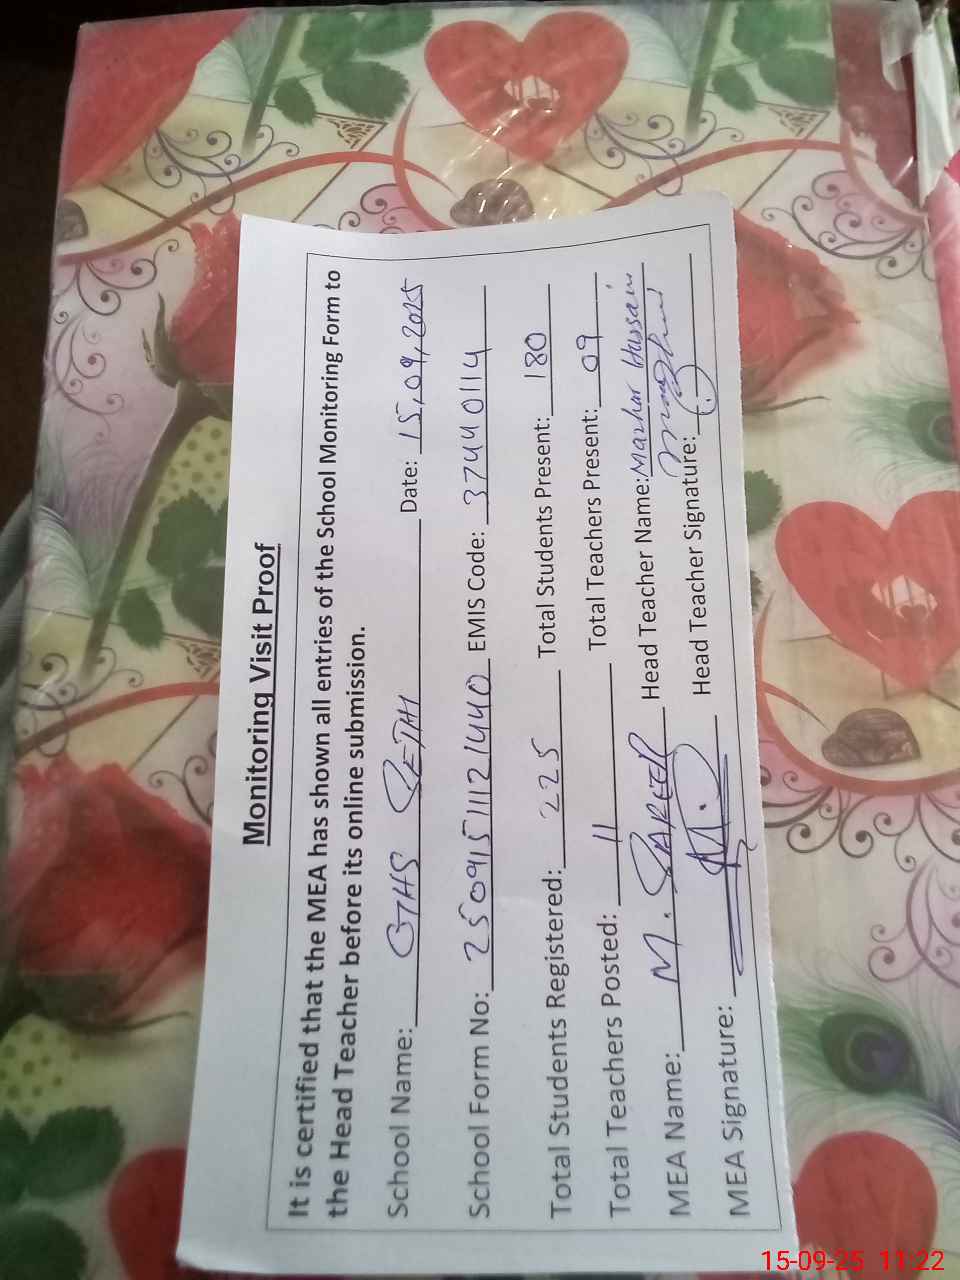 Monitoring Visit Proof
It is certified that the MEA has shown all entries of the School Monitoring Form to
the Head Teacher before its online submission.
School Name: GHS SETHI Date: 15,09,2025
School Form No: 25091511121440 EMIS Code: 37440114
Total Students Registered: 225 Total Students Present: 180
Total Teachers Posted: 11 Total Teachers Present: 09
MEA Name: M. Head Teacher Name: Mazhar Hussain
MEA Signature: Head Teacher Signature:
15-09-25 11:22